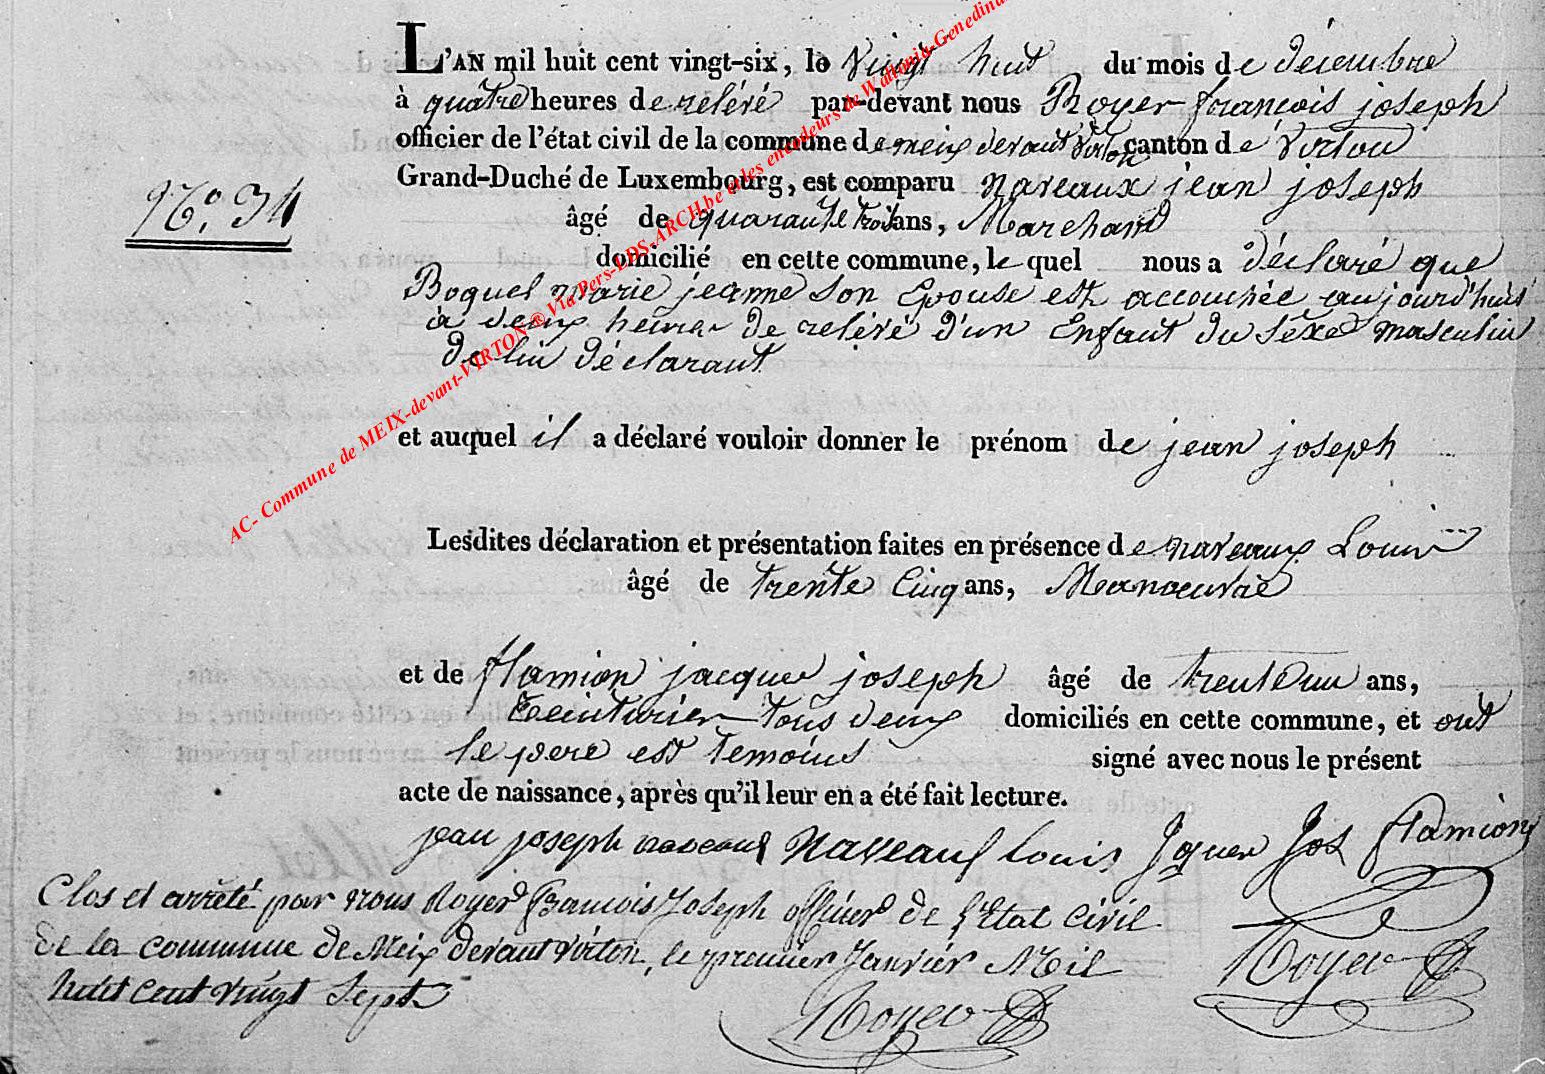 L'AN mil huit cent vingt-six, le vingt huit du mois de décembre
à quatre heures de relévé par-devant nous Royer françois joseph
officier de l'état civil de la commune de meix devant virton canton de virton
Grand-Duché de Luxembourg, est comparu naveaux jean joseph
Nº. 34
âgé de quarante trois ans, Marchand
domicilié en cette commune, le quel nous a déclaré que
Boquel marie jeanne son Epouse est accouchée aujourd'huis
a deux heures de relévé d'un Enfant du séxe masculin
de lui déclarant
et auquel il a déclaré vouloir donner le prénom de jean joseph
Lesdites déclaration et présentation faites en présence de naveaux Louis
âgé de trente cinq ans, Manoeuvre
et de flamion jacques joseph âgé de trente un ans,
teinturier tous deux domiciliés en cette commune, et ont
le pere est temoins signé avec nous le présent
acte de naissance, après qu'il leur en a été fait lecture.
jean joseph naveaux Naveaux louis Jques Jos flamion
Clos et arrêté par nous Royer François Joseph officier de l'Etat civil
de la commune de Meix devant virton, le premier Janvier Mil
huit cent vingt sept
Royer
Royer
AC- Commune de MEIX-devant-VIRTON ® Via Pers-LDS-ARCH.be et les encodeurs de Wallonia-Genedinua